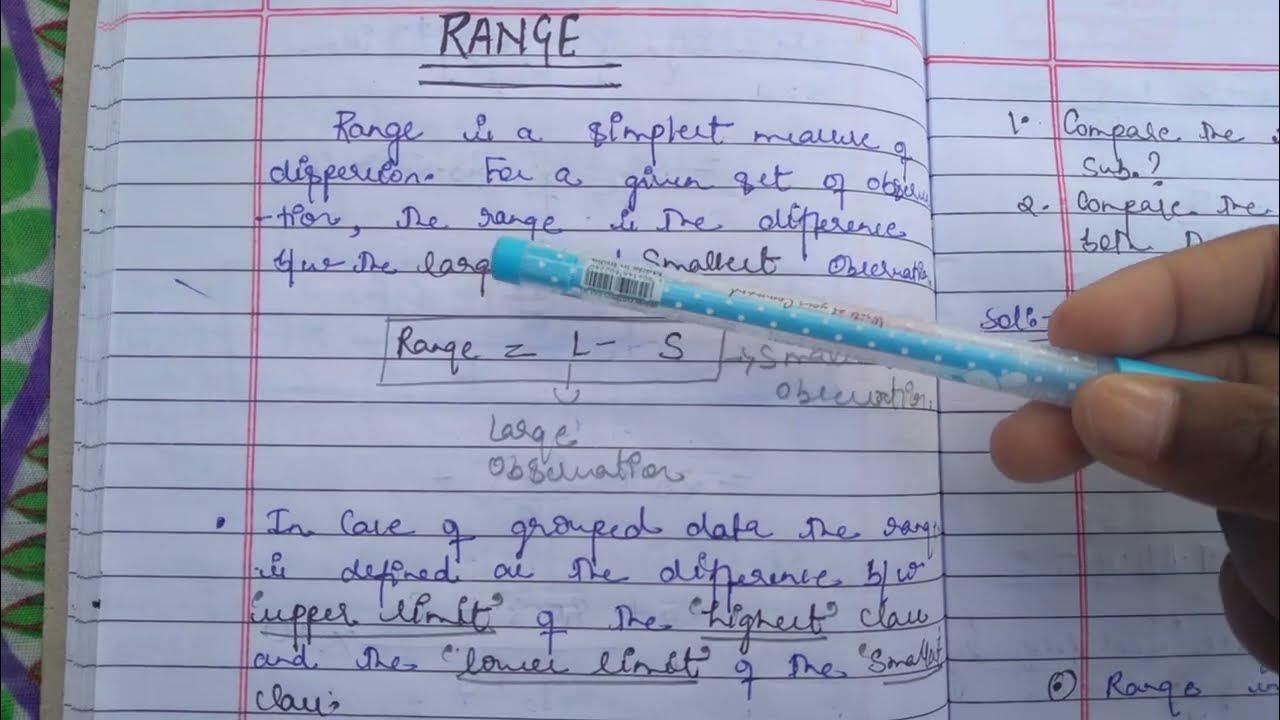 RANGE
Range is a simplest measure of
dispersion. For a given set of observa
-tion, the range is the difference
b/w the larg Smallest Observation.
Range = L - S → Smallest
Observation.
Large
Observation
• In Case of grouped data the range
is defined as the difference b/w
"upper limit" of the "highest" class
and the "lower limit" of the "Smallest
class.
1. Compare the
Sub.?
2. Compare the
both
Soln
Write at your Command
⑥ Range is